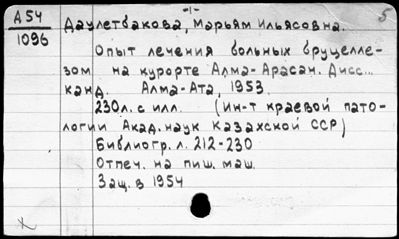 -1-
5
А54
1096
Даулетбакова, Марьям Ильясовна.
Опыт лечения больных бруцелле-
зом на курорте Алма-Арасан. Дисс...
канд. Алма-Ата, 1953.
230л. с илл. (Ин-т краевой пато-
логии Акад. наук Казахской ССР)
Библиогр. л. 212-230
Отпеч. на пиш. маш.
Защ. в 1954